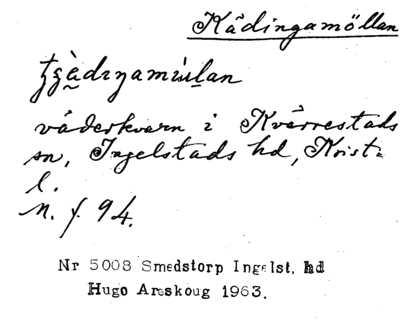 Kådingamöllan
väderkvarn i Kverrestads
sn, Ingelstads hd, Krist.
l.
n. f. 94.
Nr 5008 Smedstorp Ingelst. hd
Hugo Areskoug 1963.